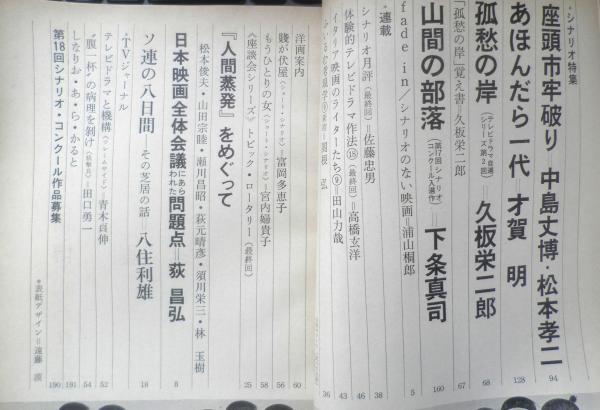 ・シナリオ特集
座頭市牢破り=中島丈博・松本孝二 94
あほんだら一代 才賀 明 128
孤愁の岸(テレビドラマ自選シリーズ第2回)=久板栄二郎 68
「孤愁の岸」覚え書=久板栄二郎 67
山間の部落(第17回シナリオコンクール入選作)=下条真司 160
fade in/シナリオのない映画=浦山桐郎 5
・連載
シナリオ月評(最終回)=佐藤忠男 38
体験的テレビドラマ作法⑮(最終回)=高橋玄洋 46
イタリア映画のライターたち⑨=田山力哉 43
関根 弘 36
洋画案内 60
賤が伏屋(ショート・シナリオ)=富岡多恵子 56
もうひとりの女(ショート・シナリオ)=宮内婦貴子 58
《座談会シリーズ》トピック・ロータリー(最終回) 25
『人間蒸発』をめぐって
松本俊夫・山田宗睦・瀬川昌昭・荻元晴彦・須川栄三・林 玉樹
日本映画全体会議にあらわれた問題点=荻 昌弘 8
ソ連の八日間 その芝居の話=八住利雄 18
・TVジャーナル
テレビドラマと機構(フレームサイド)=青木貞伸 52
"腹一杯"の病理を剝け(狙撃兵)=田口勇一 54
しなりお・あ・ら・かると 191
第18回シナリオ・コンクール作品募集 190
*表紙デザイン=遠藤